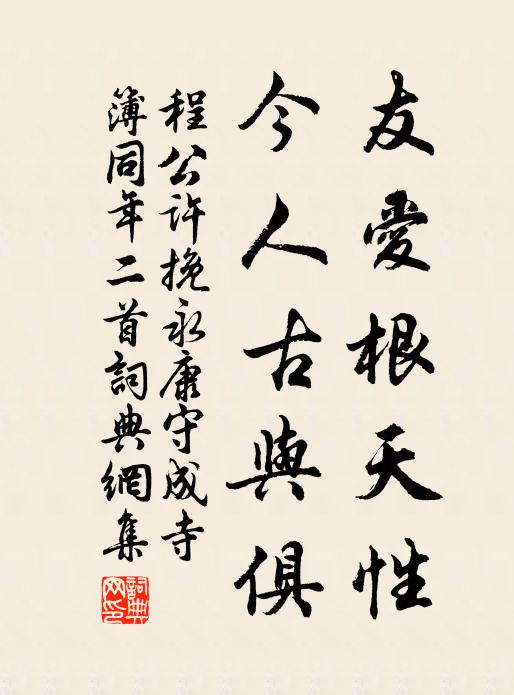 友愛根天性
今人古與俱
程公許挽永康守成寺
簿同年二首詞典網集
詞典網印